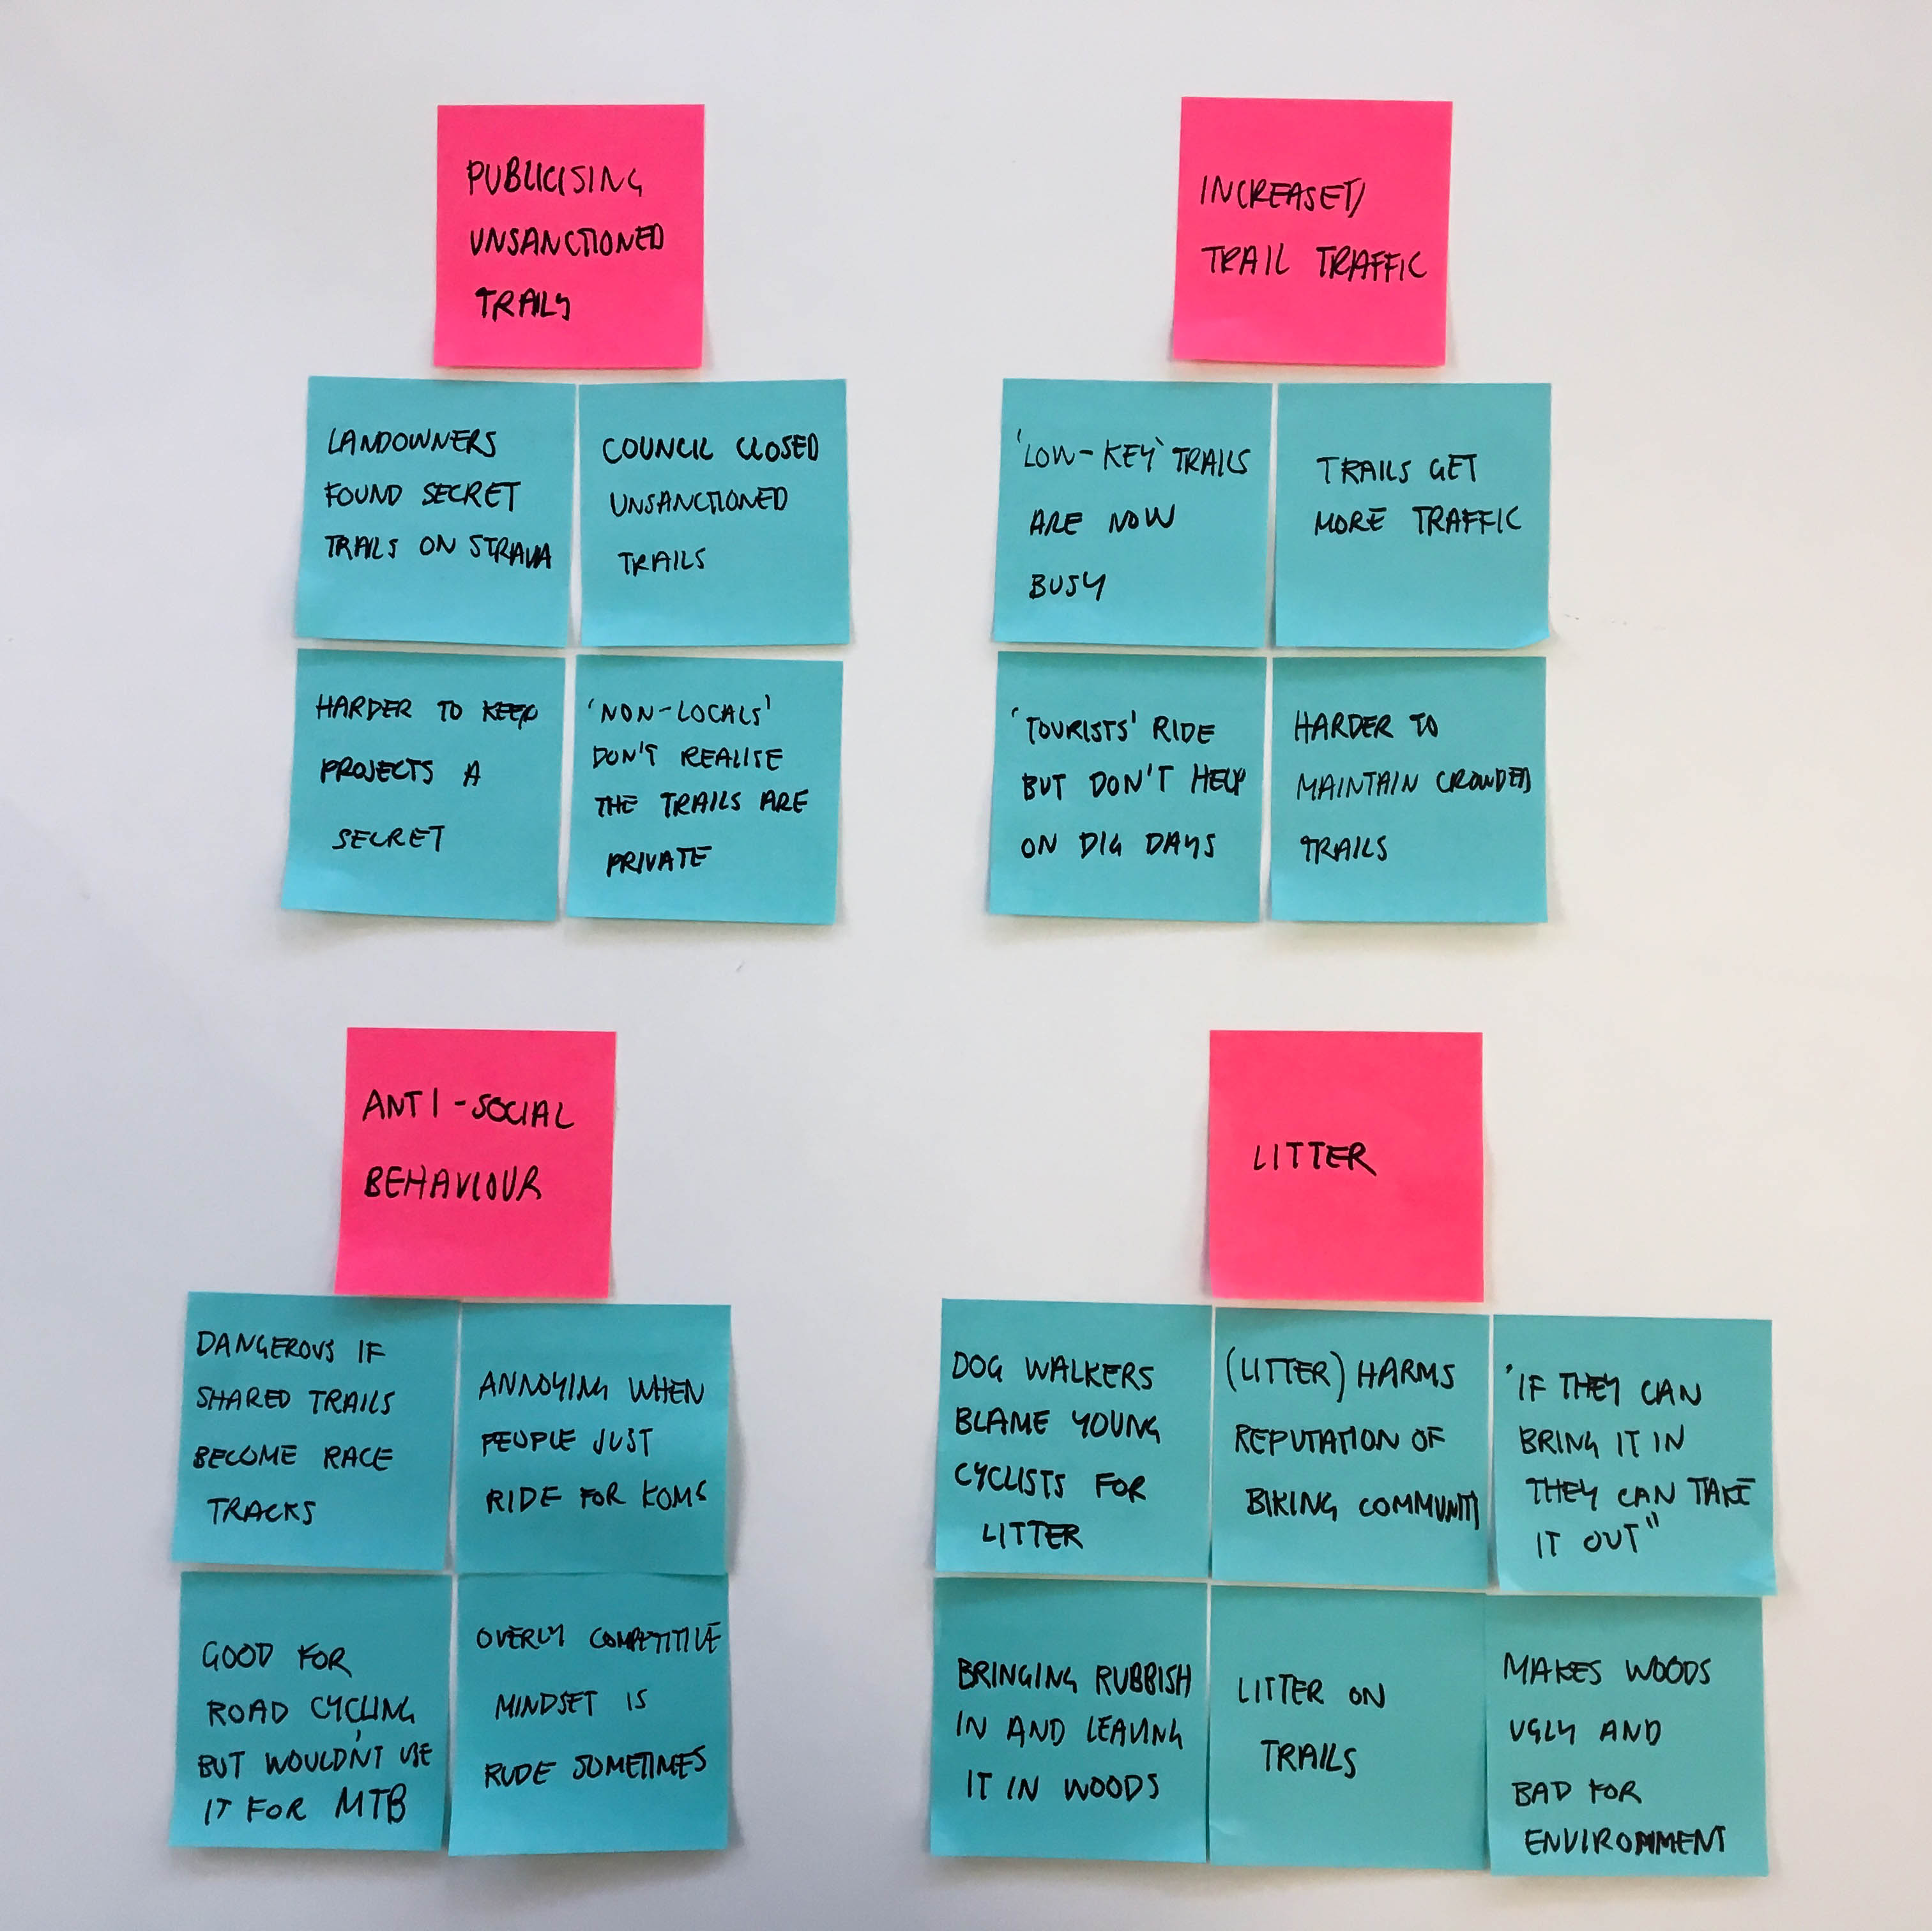 PUBLICISING
UNSANCTIONED
TRAILS
LANDOWNERS
FOUND SECRET
TRAILS ON STRAVA
COUNCIL CLOSED
UNSANCTIONED
TRAILS
HARDER TO KEEP
PROJECTS A
SECRET
'NON-LOCALS'
DON'T REALISE
THE TRAILS ARE
PRIVATE
INCREASED
TRAIL TRAFFIC
'LOW-KEY' TRAILS
ARE NOW
BUSY
TRAILS GET
MORE TRAFFIC
'TOURISTS' RIDE
BUT DON'T HELP
ON DIG DAYS
HARDER TO
MAINTAIN CROWDED
TRAILS
ANTI-SOCIAL
BEHAVIOUR
DANGEROUS IF
SHARED TRAILS
BECOME RACE
TRACKS
ANNOYING WHEN
PEOPLE JUST
RIDE FOR KOMS
GOOD FOR
ROAD CYCLING,
BUT WOULDN'T USE
IT FOR MTB
OVERLY COMPETITIVE
MINDSET IS
RUDE SOMETIMES
LITTER
DOG WALKERS
BLAME YOUNG
CYCLISTS FOR
LITTER
(LITTER) HARMS
REPUTATION OF
BIKING COMMUNITY
"IF THEY CAN
BRING IT IN
THEY CAN TAKE
IT OUT"
BRINGING RUBBISH
IN AND LEAVING
IT IN WOODS
LITTER ON
TRAILS
MAKES WOODS
UGLY AND
BAD FOR
ENVIRONMENT